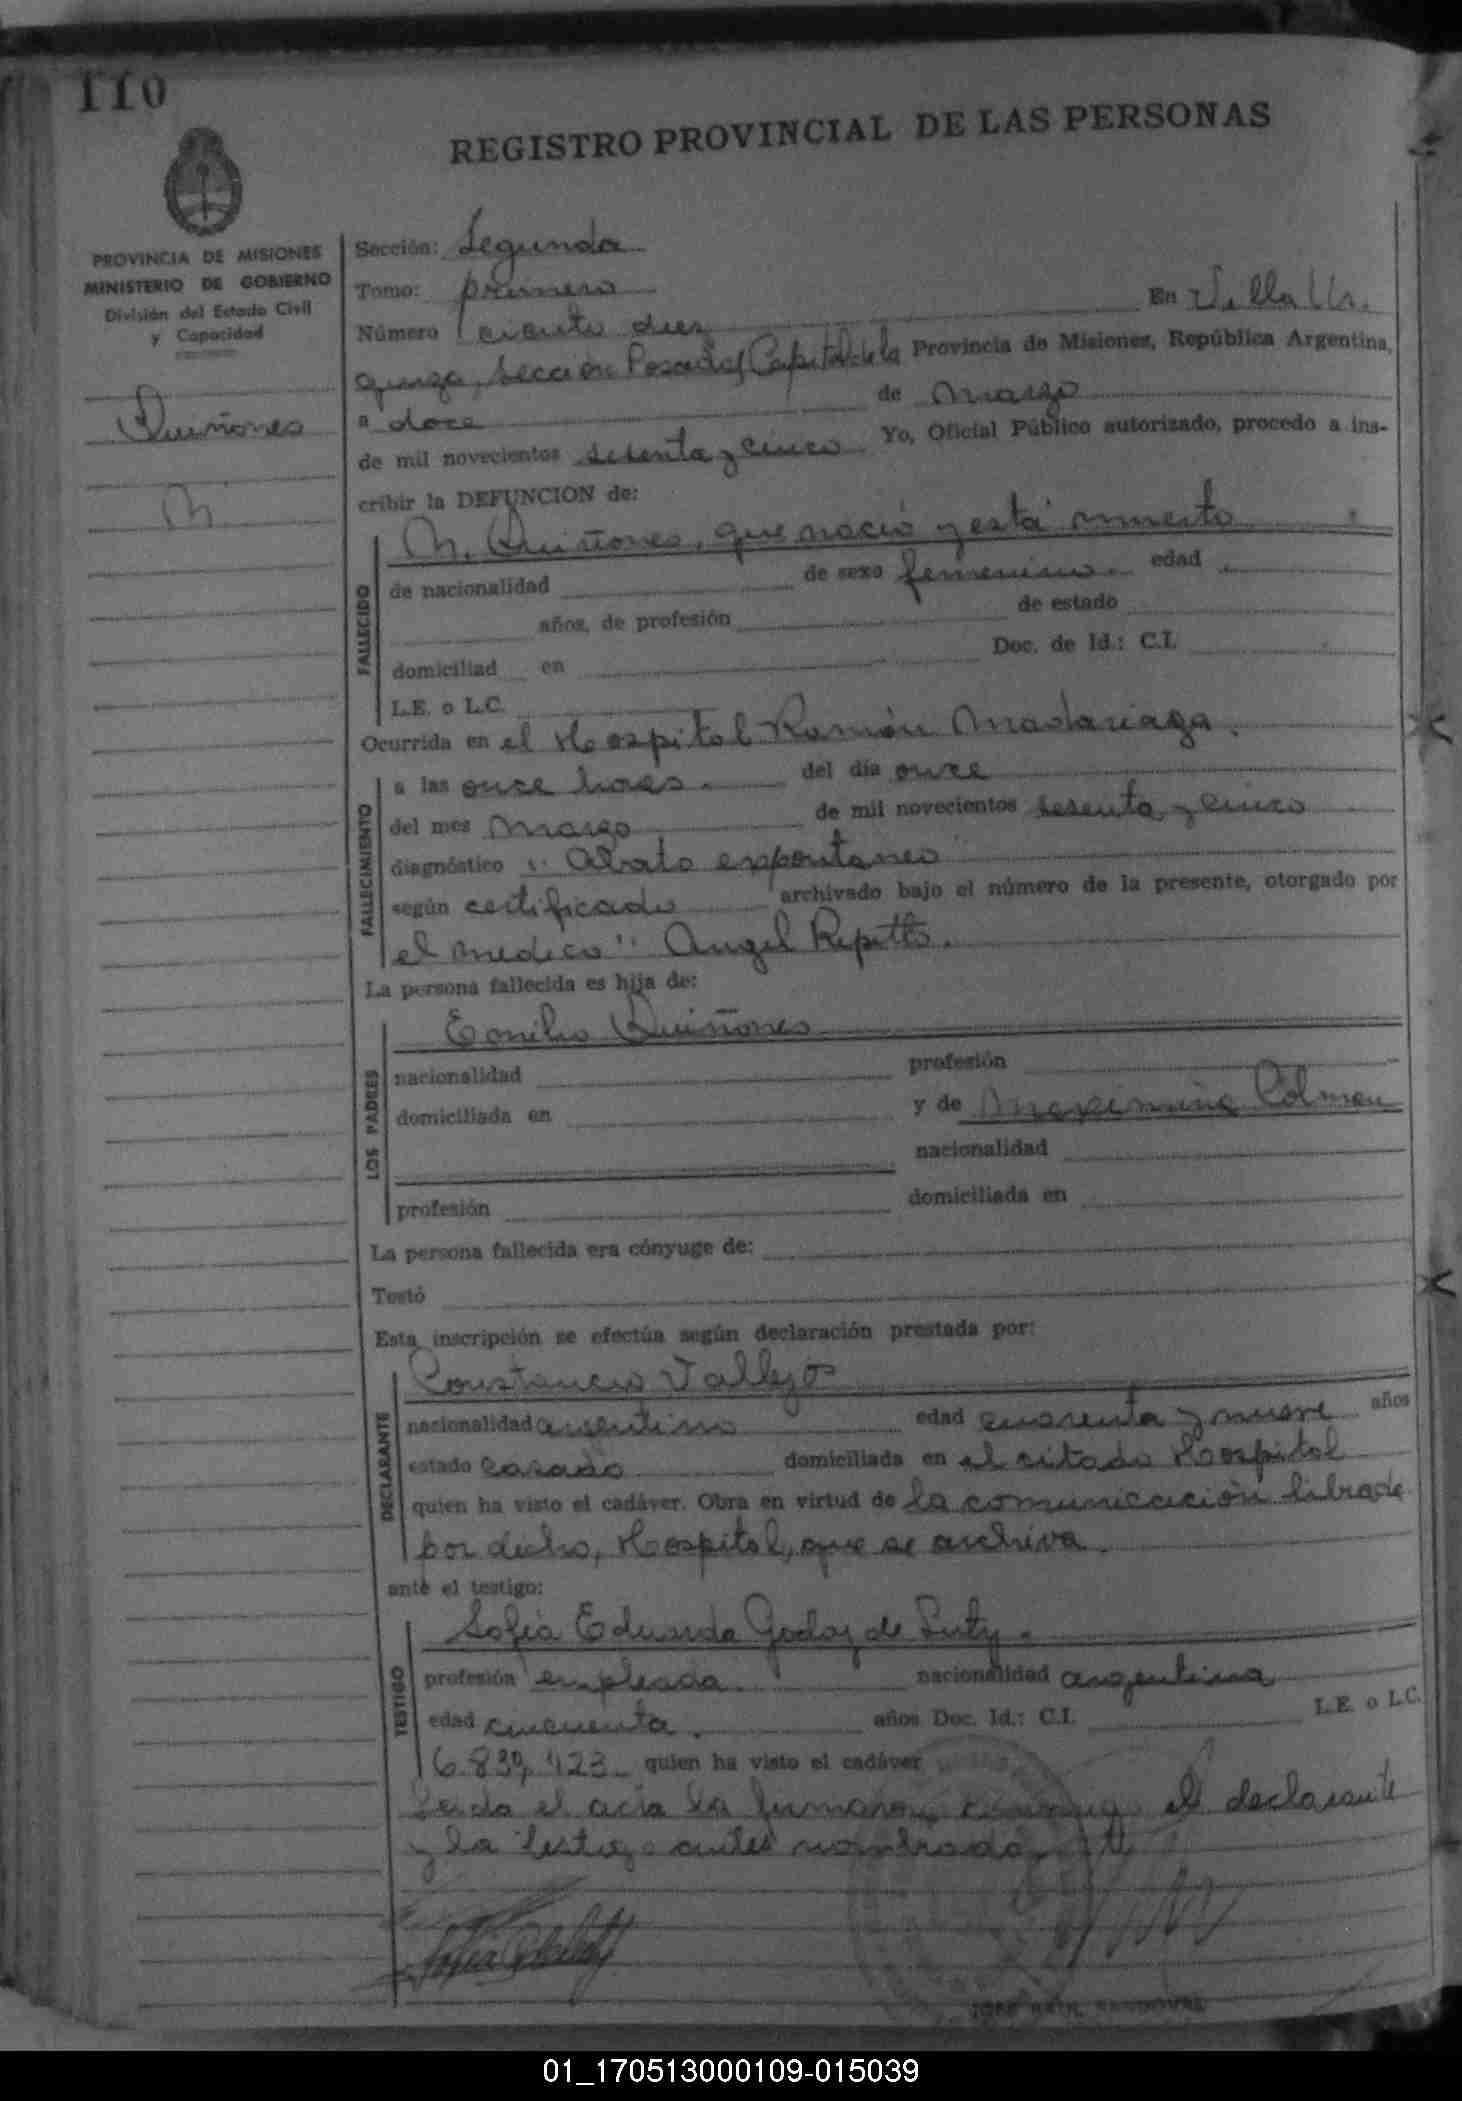 110
REGISTRO PROVINCIAL DE LAS PERSONAS
PROVINCIA DE MISIONES
MINISTERIO DE GOBIERNO
División del Estado Civil
y Capacidad
Quiñones
N.
Sección: Segunda
Tomo: primero
Número ciento diez En Villa Ur.
quiza, Sección Posadas Capital de la Provincia de Misiones, República Argentina,
a doce de Marzo
de mil novecientos setenta y cinco Yo, Oficial Público autorizado, procedo a ins-
cribir la DEFUNCION de:
FALLECIDO
N. Quiñones, que nació y está muerto
de nacionalidad de sexo femenino. edad
años, de profesión de estado
domiciliad en Doc. de Id.: C.I.
L.E. o L.C.
Ocurrida en el Hospital Ramón Madariaga.
FALLECIMIENTO
a las once horas. del día once
del mes Marzo de mil novecientos setenta y cinco
diagnóstico "Aborto expontaneo
según certificado archivado bajo el número de la presente, otorgado por
el medico" Angel Repetto.
La persona fallecida es hija de:
LOS PADRES
Emilio Quiñones
nacionalidad profesión
domiciliada en y de Maximina Colman
nacionalidad
profesión domiciliada en
La persona fallecida era cónyuge de:
Testó
Esta inscripción se efectúa según declaración prestada por:
DECLARANTE
Constancio Vallejos
nacionalidad argentino edad cuarenta y nueve años
estado casado domiciliada en el citado Hospital
quien ha visto el cadáver. Obra en virtud de la comunicación librada
por dicho, Hospital, que se archiva.
ante el testigo:
TESTIGO
Sofia Eduarda Godoy de
profesión empleada nacionalidad argentina
edad cincuenta. años Doc. Id.: C.I. L.E. o L.C.
6.839.423 quien ha visto el cadáver
Leida el acta la firmaron conmigo el declarante
y la testigo antes nombrada
JOSE RAUL SANDOVAL
01_170513000109-015039